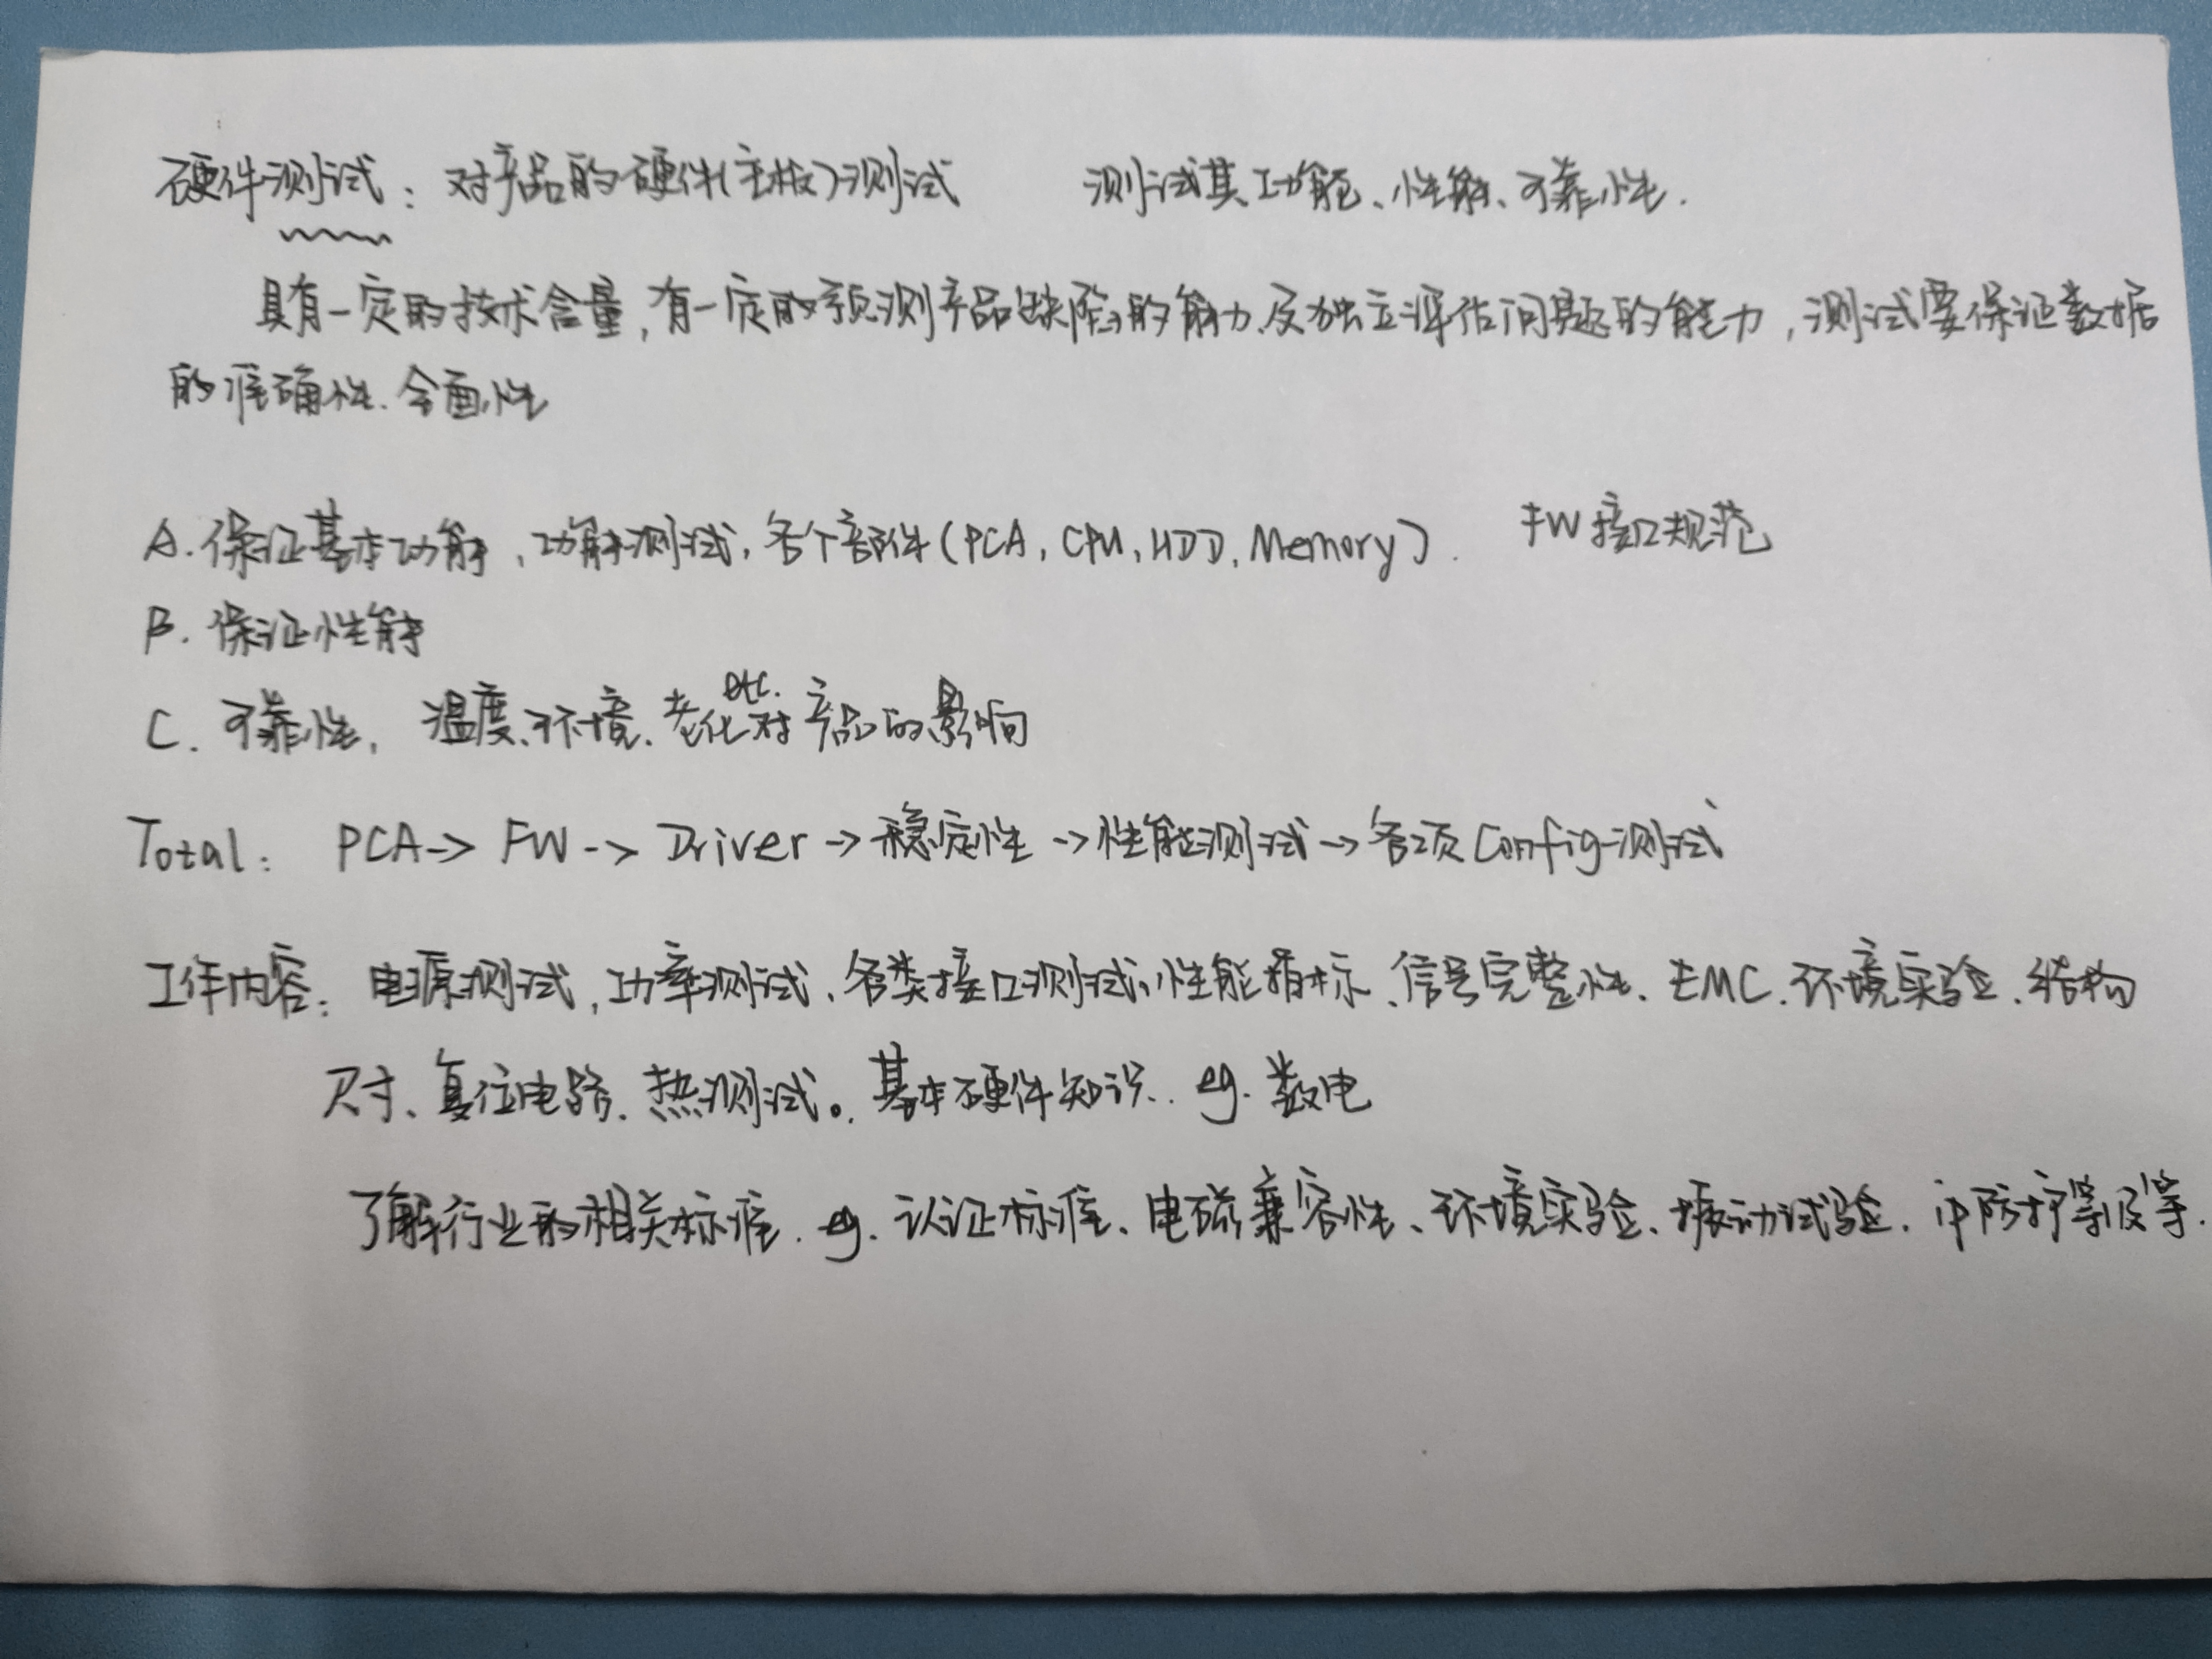 硬件测试：对产品的硬件(主板)测试 测试其功能、性能、可靠性.
具有一定的技术含量,有一定的预测产品缺陷的能力及独立评估问题的能力,测试要保证数据
的准确性.全面性
A.保证基本功能,功能测试,各个部件(PCA,CPU,HDD,Memory). FW接口规范
B.保证性能
etc.
C.可靠性,温度、环境、老化对产品的影响
Total: PCA-> FW-> Driver->稳定性->性能测试->各项Config测试
工作内容：电源测试,功率测试、各类接口测试,性能指标、信号完整性、EMC.环境实验、结构
尺寸、复位电路、热测试。基本硬件知识.. eg.数电
了解行业的相关标准. eg.认证标准、电磁兼容性、环境实验、振动试验.ip防护等级等.